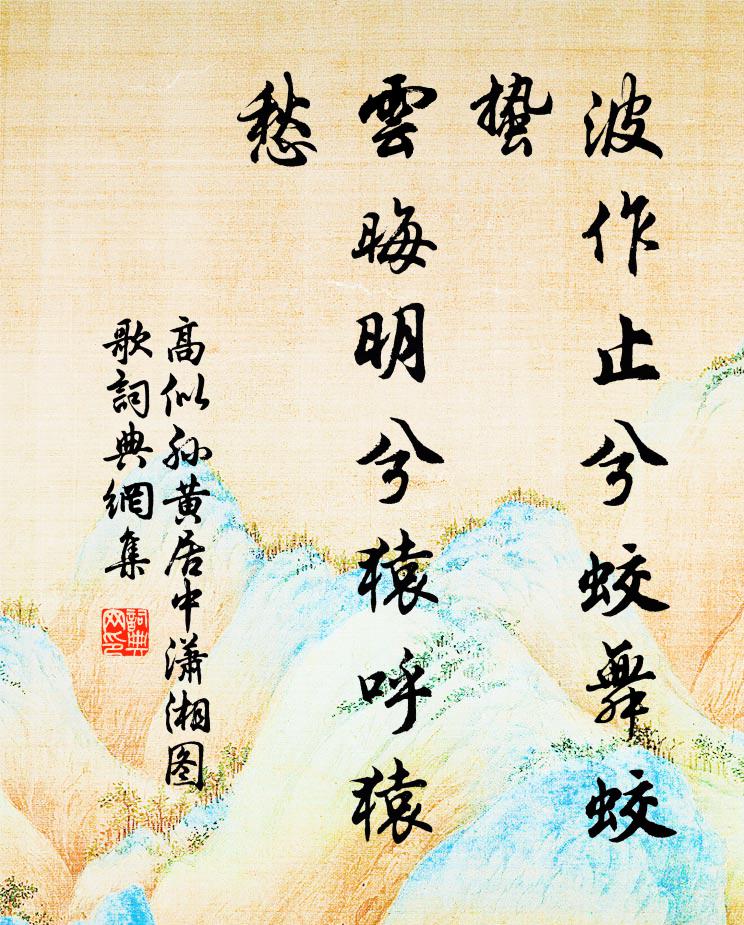 波作止兮蛟舞蛟
蛰
雲晦明兮猿呼猿
愁
高似孙黄居中潇湘图
歌詞典網集
詞典
网印